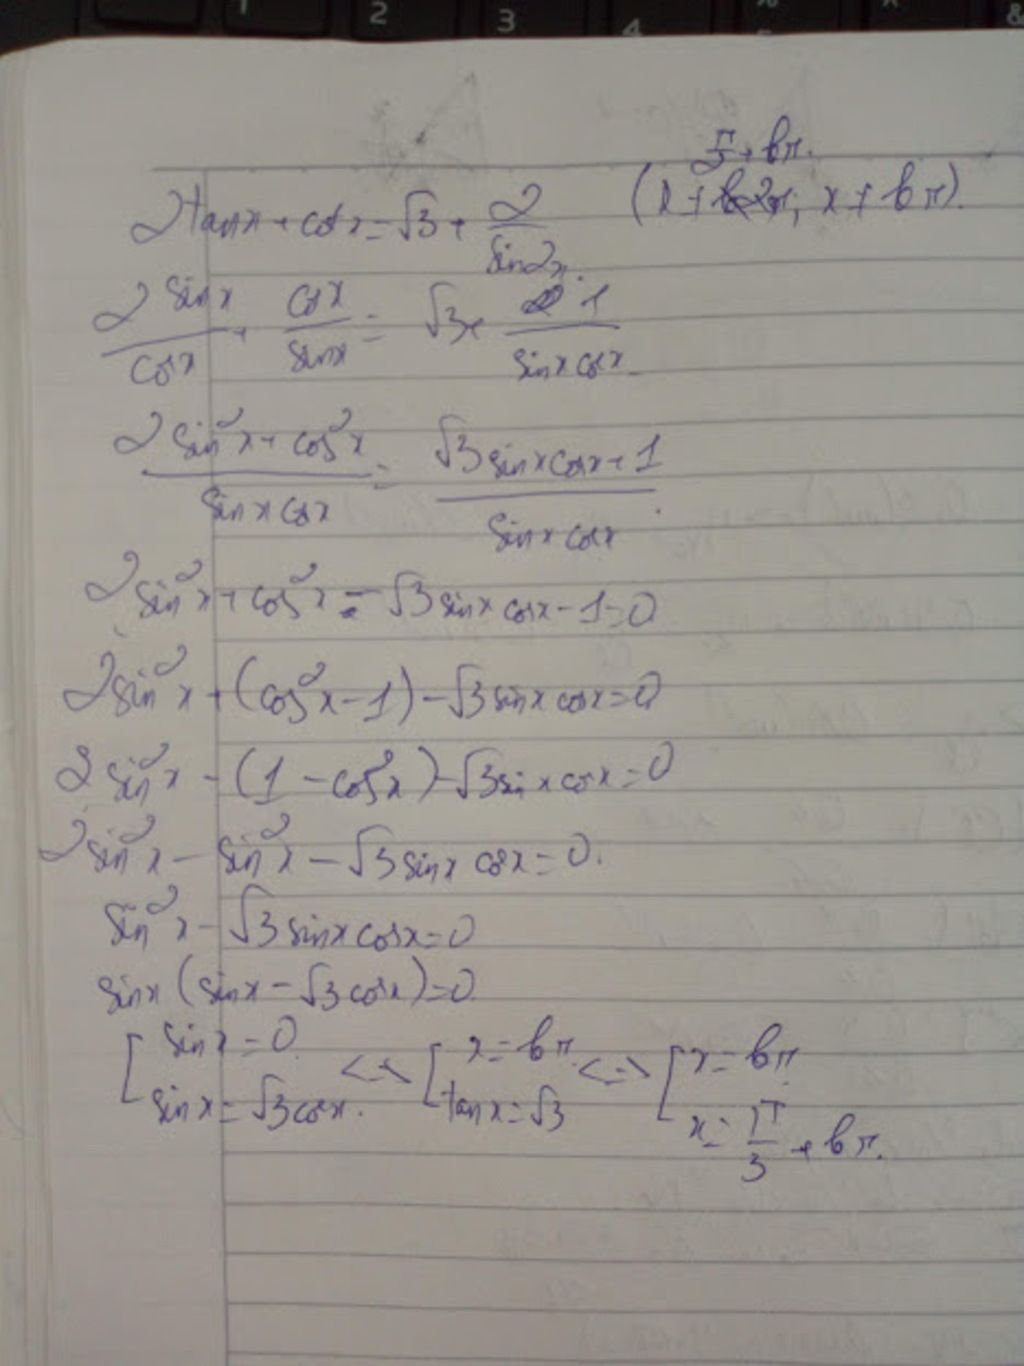 π/2 + kπ.
2tanx + cotx = √3 + 2/sin2x. (x ≠ , x ≠ kπ).
2 sinx/cosx + cosx/sinx = √3 + 1/sinxcosx
(2sin²x + cos²x)/(sinxcosx) = (√3sinxcosx + 1)/(sinxcosx)
2sin²x + cos²x - √3sinxcosx - 1 = 0
2sin²x + (cos²x - 1) - √3sinxcosx = 0
2sin²x - (1 - cos²x) - √3sinxcosx = 0
2sin²x - sin²x - √3sinxcosx = 0.
sin²x - √3sinxcosx = 0
sinx(sinx - √3cosx) = 0
[ sinx = 0 <=> [ x = kπ <=> [ x = kπ
sinx = √3cosx. tanx = √3 x = π/3 + kπ.